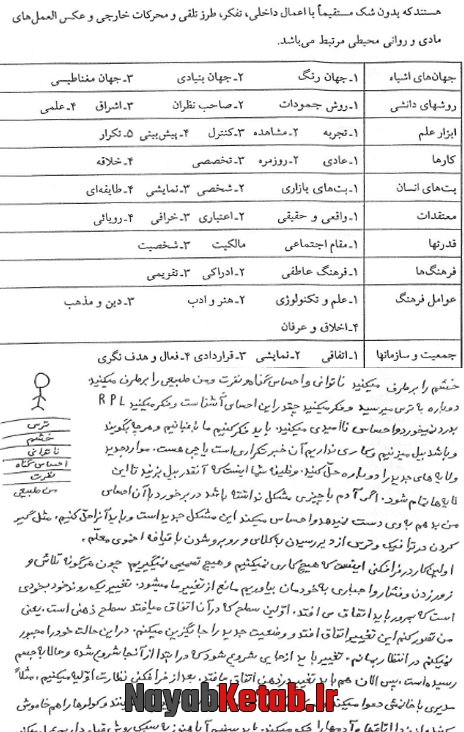 هستند که بدون شک مستقیماً با اعمال داخلی، تفکر، طرز تلقی و محرکات خارجی و عکس العمل‌های
مادی و روانی محیطی مرتبط می‌باشد.
جهان‌های اشیاء ۱ـ جهان رنگ ۲ـ جهان بنیادی ۳ـ جهان مغناطیسی
روشهای دانشی ۱ـ روش جمودات ۲ـ صاحب نظران ۳ـ اشراق ۴ـ علمی
ابزار علم ۱ـ تجربه ۲ـ مشاهده ۳ـ کنترل ۴ـ پیش‌بینی ۵ـ تکرار
کارها ۱ـ عادی ۲ـ روزمره ۳ـ تخصصی ۴ـ خلاقه
بت‌های انسان ۱ـ بت‌های بازاری ۲ـ شخصی ۳ـ نمایشی ۴ـ طایفه‌ای
معتقدات ۱ـ واقعی و حقیقی ۲ـ اعتباری ۳ـ خرافی ۴ـ رویائی
قدرتها ۱ـ مقام اجتماعی مالکیت ۳ـ شخصیت
فرهنگ‌ها ۱ـ فرهنگ عاطفی ۲ـ ادراکی ۳ـ تقویمی
عوامل فرهنگ ۱ـ علم و تکنولوژی ۲ـ هنر و ادب ۳ـ دین و مذهب
۴ـ اخلاق و عرفان
جمعیت و سازمانها ۱ـ اتفاقی ۲ـ نمایشی ۳ـ قراردادی ۴ـ فعال و هدف نگری
خشم را برطرف میکنید ناتوانی و احساس گناه و نفرت و من طبیعی را برطرف میکنید
دوباره به ترس میرسید و فکر میکنید چقدر این احساس آشناست و فکر میکنید RPL
بدرد نمیخورد و احساس ناامیدی میکنید. باید فکر کنیم ما نمیدانیم و هر چه بگویند
و باشد بیل میزنیم و کاری نداریم آن خبر تکراری است یا چی هست. موارد جدید
و لایه های جدید را دوباره حل کنید. وظیفه شما اینست که آنقدر بیل بزنید تا این
لایه ها تمام شود. اگر آدم با چیزی مشکل نداشته باشد در برخورد با آن احساس
من بد هم به وی دست نمیدهد و احساس میکند این مشکل جدید است و باید آنرا حل کنیم. مثل گیر
کردن در ترافیک و ترس از دیر رسیدن به کلاس و روبرو شدن با قیافه اخموی معلم.
اولین کار در فرافکنی اینست که هیچ کاری نمیکنیم و هیچ تصمیمی نمیگیریم چون هرگونه تلاش و
زور زدن و فشار و اجباری به خودمان بیاوریم مانع از تغییر ما میشود. تغییر یک روند خود بخودی
است که به مرور باید اتفاق می افتد. اولین سطح که در آن اتفاق میافتد سطح ذهنی است. یعنی
من تصور کنم این تغییر اتفاق افتد و وضعیت جدید را جایگزین میکنم. در این حالت خود را مجبور
نمیکنم در انتظار بمانم. تغییر باید از جایی شروع شود که در ابتدا از آنجا شروع شده و حالا به جسم
رسیده است. پس الان هم باید تغییر در ذهن اتفاق بیافتد. بعد از فرافکنی نظارت اولیه میکنیم. مثلاً
ترس
خشم
ناتوانی
احساس گناه
نفرت
من طبیعی
NayabKetab.Ir